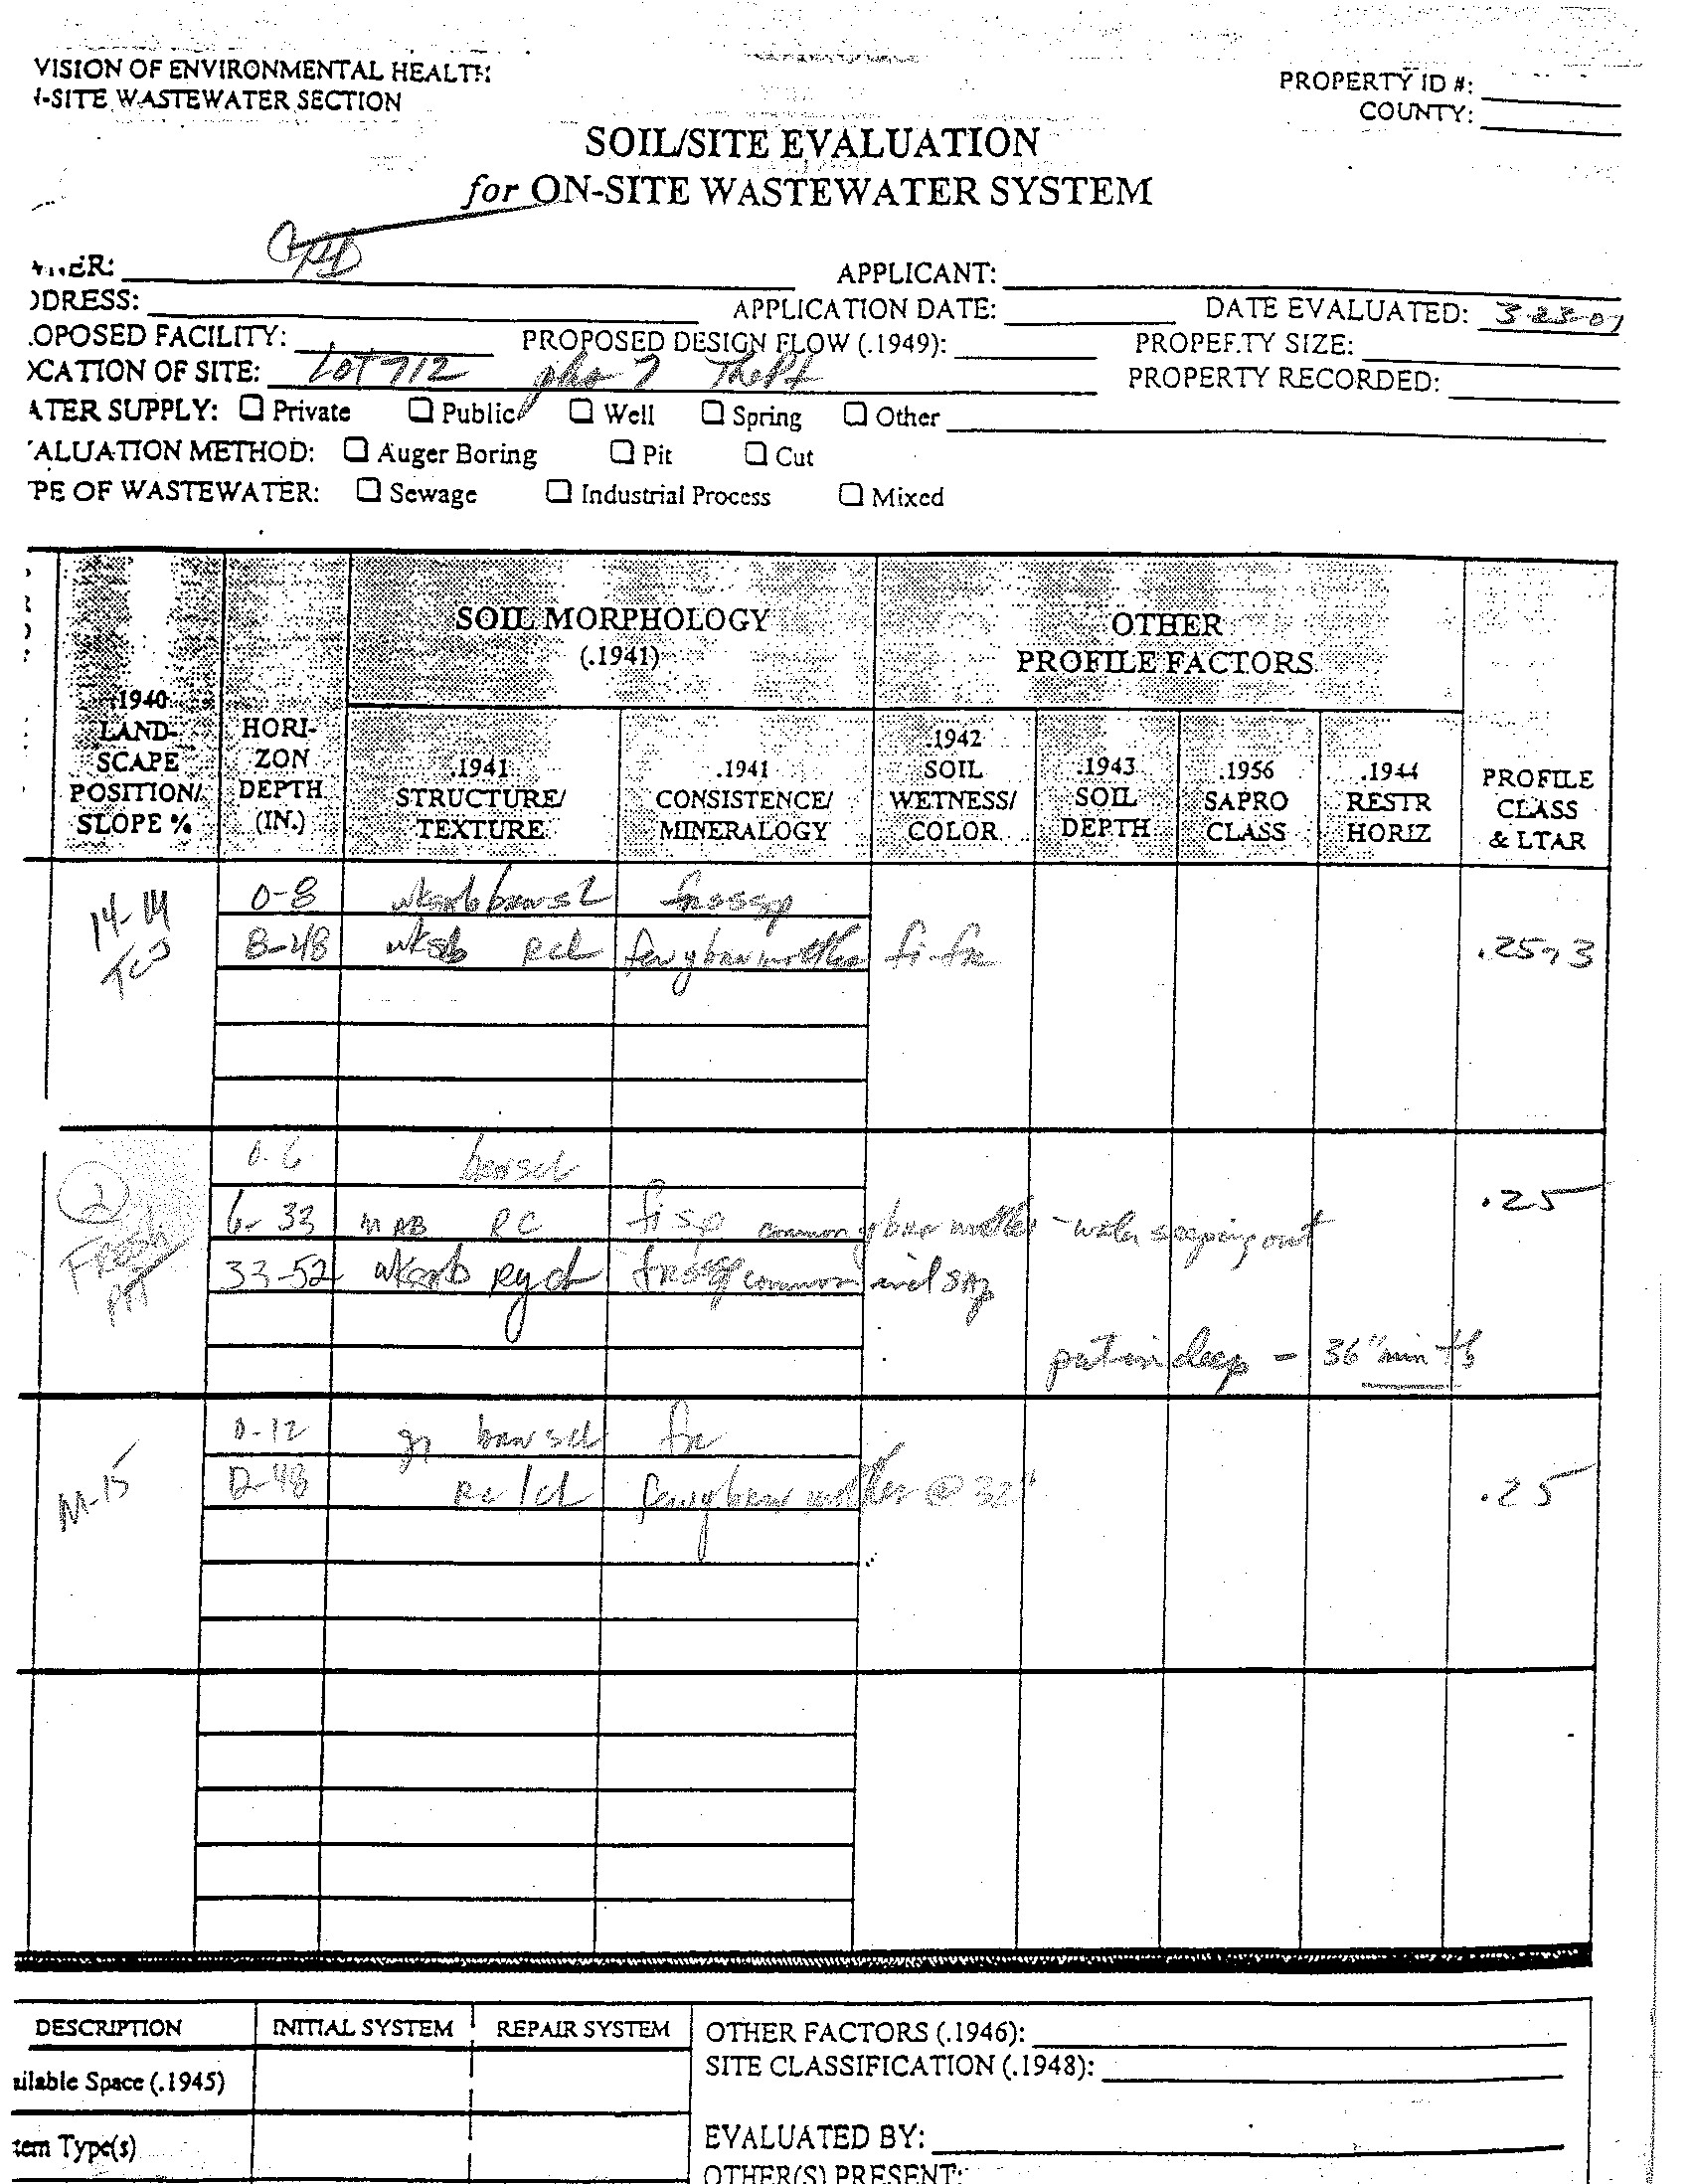 VISION OF ENVIRONMENTAL HEALTH
-SITE WASTEWATER SECTION
PROPERTY ID #:
COUNTY:
SOIL/SITE EVALUATION
for ON-SITE WASTEWATER SYSTEM
ER:
APPLICANT:
DDRESS:
APPLICATION DATE:
DATE EVALUATED: 3-23-07
OPOSED FACILITY:
PROPOSED DESIGN FLOW (.1949):
PROPERTY SIZE:
CATION OF SITE: LOT 712
PROPERTY RECORDED:
ATER SUPPLY: Private Public Well Spring Other
ALUATION METHOD: Auger Boring Pit Cut
PE OF WASTEWATER: Sewage Industrial Process Mixed
.1940 LAND-SCAPE POSITION/ SLOPE %
HORI-ZON DEPTH (IN.)
SOIL MORPHOLOGY (.1941)
OTHER PROFILE FACTORS
.1941 STRUCTURE/ TEXTURE
.1941 CONSISTENCE/ MINERALOGY
.1942 SOIL WETNESS/ COLOR
.1943 SOIL DEPTH
.1956 SAPRO CLASS
.1944 RESTR HORIZ
PROFILE CLASS & LTAR
0-8
8-48 wksb rcl few ybrn mottles fi-fr
0-6 brnscl
2
6-33 MAB RC fi sp common ybrn mottles - water seeping out .25
33-52
put in deep - 36" min
0-12 gr brn scl fr
M-15
12-48 rc/cl few ybrn mottles @ 32" .25
DESCRIPTION
INITIAL SYSTEM
REPAIR SYSTEM
OTHER FACTORS (.1946):
SITE CLASSIFICATION (.1948):
ailable Space (.1945)
tem Type(s)
EVALUATED BY:
OTHER(S) PRESENT: